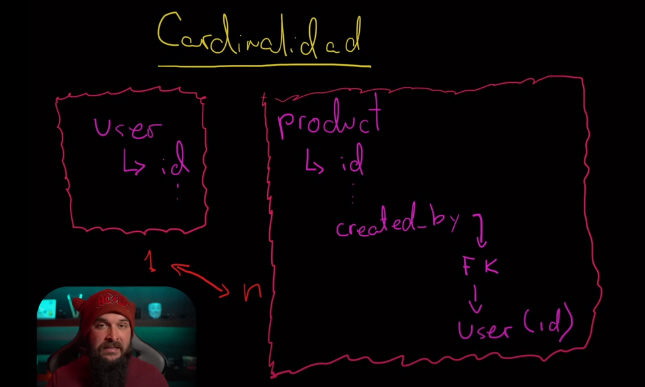 Cardinalidad
user
↳ id
product
↳ id
created_by
FK
User (id)
1 ↔ n